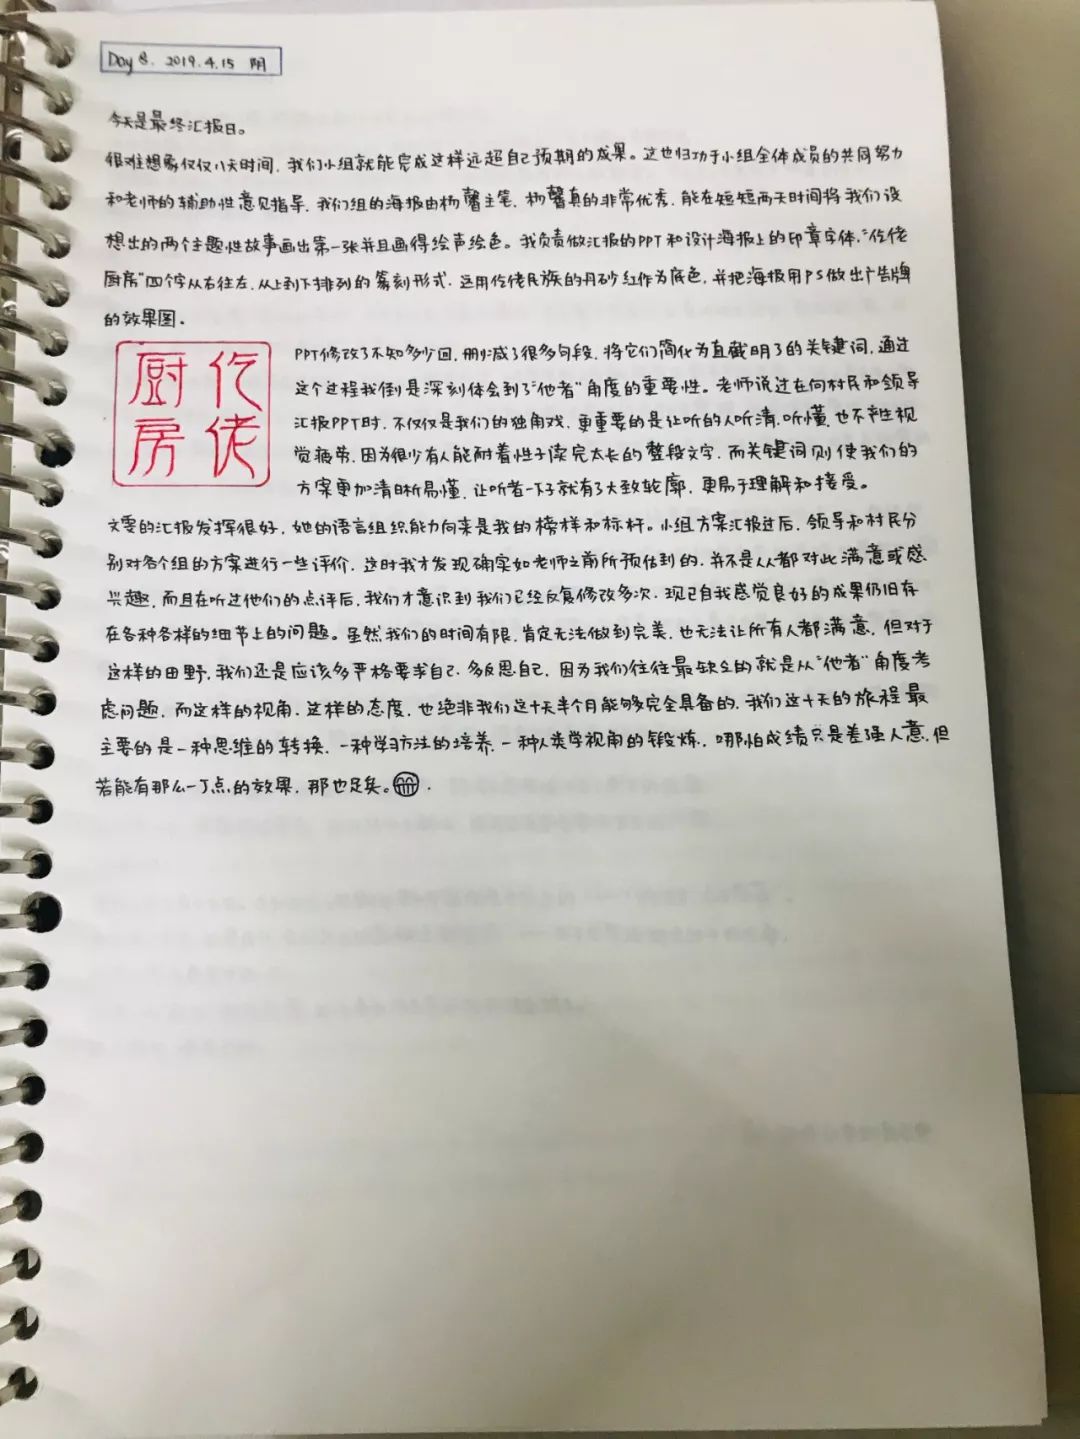 Day 8. 2019.4.15 阴
今天是最终汇报日。
很难想象仅仅八天时间，我们小组就能完成这样远超自己预期的成果。这也归功于小组全体成员的共同努力
和老师的辅助性意见指导，我们组的海报由杨馨主笔，杨馨真的非常优秀，能在短短两天时间将我们设
想出的两个主题性故事画出第一张并且画得绘声绘色。我负责做汇报的PPT和设计海报上的印章字体，“仡佬
厨房”四个字从右往左，从上到下排列的篆刻形式，运用仡佬民族的丹砂红作为底色，并把海报用PS做出广告牌
的效果图。
仡佬
厨房
PPT修改了不知多少回，删减了很多句段，将它们简化为直截明了的关键词，通过
这个过程我倒是深刻体会到了“他者”角度的重要性。老师说过在向村民和领导
汇报PPT时，不仅仅是我们的独角戏，更重要的是让听的人听清，听懂，也不产生视
觉疲劳，因为很少有人能耐着性子读完太长的整段文字，而关键词则使我们的
方案更加清晰易懂，让听者一下子就有了大致轮廓，更易于理解和接受。
文雯的汇报发挥很好，她的语言组织能力向来是我的榜样和标杆。小组方案汇报过后，领导和村民分
别对各个组的方案进行一些评价，这时我才发现确实如老师之前所预估到的，并不是人人都对此满意或感
兴趣，而且在听过他们的点评后，我们才意识到我们已经反复修改多次，现已自我感觉良好的成果仍旧存
在各种各样的细节上的问题。虽然我们的时间有限，肯定无法做到完美，也无法让所有人都满意，但对于
这样的田野，我们还是应该多严格要求自己，多反思自己，因为我们往往最缺乏的就是从“他者”角度考
虑问题，而这样的视角，这样的态度，也绝非我们这十天半个月能够完全具备的，我们这十天的旅程最
主要的是一种思维的转换，一种学习方法的培养，一种人类学视角的锻炼，哪怕成绩只是差强人意，但
若能有那么一丁点的效果，那也足矣。